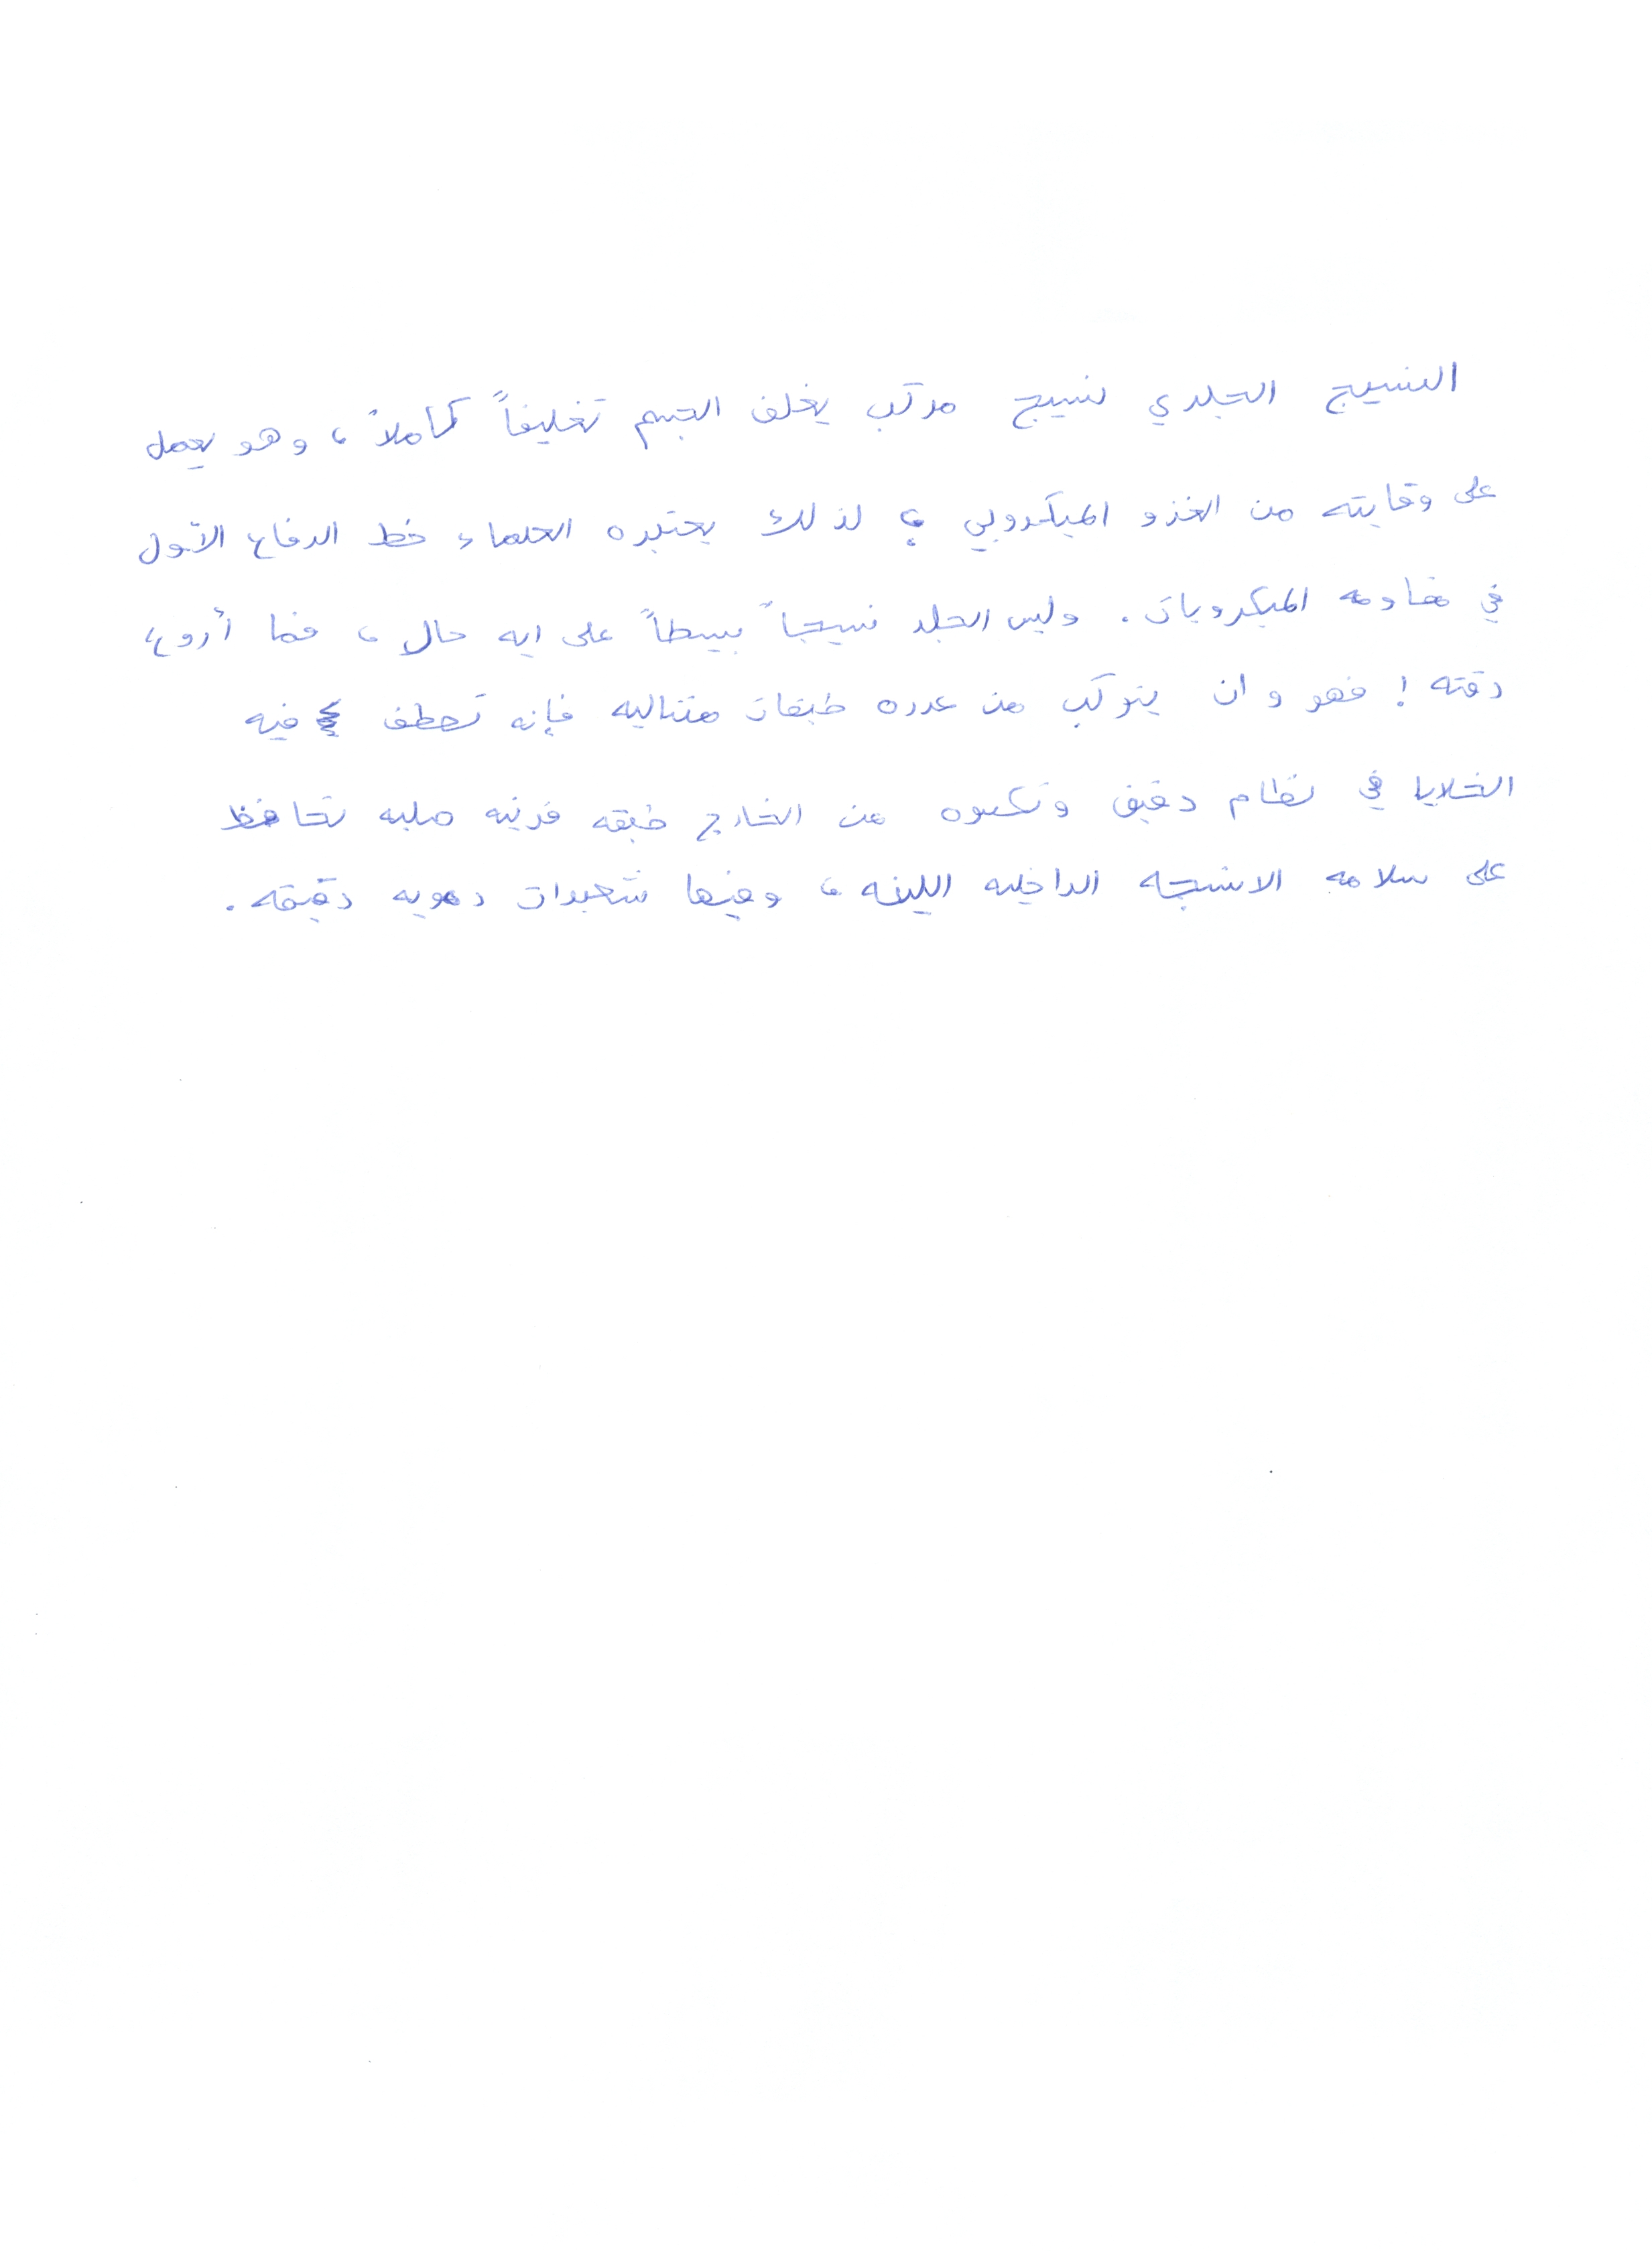 النسيج الجلدي نسيج مركب يغلف الجسم تغليفاً كاملاً، وهو يعمل
على وقايته من الغزو الميكروبي؛ لذلك يعتبره العلماء خط الدفاع الأول
في مقاومه الميكروبات. وليس الجلد نسيجاً بسيطاً على ايه حال، فما أروع
دقته! فهو وان يتركب من عدده طبقات متتاليه فإنه تصطف فيه
الخلايا في نظام دقيق وتكسوه من الخارج طبقه قرنيه صلبه تحافظ
على سلامه الانسجه الداخليه اللينه، وفيها شعيرات دمويه دقيقه.